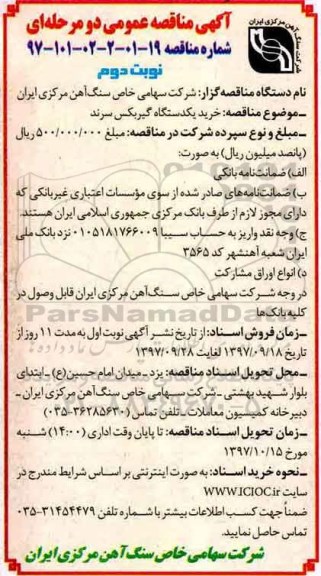 شرکت سنگ آهن مرکزی ایران
آگهی مناقصه عمومی دو مرحله‌ای
شماره مناقصه ۱۹-۰۱-۲-۰۲-۱۰۱-۹۷
نوبت دوم
نام دستگاه مناقصه‌گزار: شرکت سهامی خاص سنگ‌آهن مرکزی ایران
ـ موضوع مناقصه: خرید یکدستگاه گیربکس سرند
ـ مبلغ و نوع سپرده شرکت در مناقصه: مبلغ ۵۰۰/۰۰۰/۰۰۰ ریال
(پانصد میلیون ریال) به صورت:
الف) ضمانت‌نامه بانکی
ب) ضمانت‌نامه‌های صادر شده از سوی مؤسسات اعتباری غیربانکی که
دارای مجوز لازم از طرف بانک مرکزی جمهوری اسلامی ایران هستند.
ج) وجه نقد واریز به حساب سیبا ۰۱۰۵۱۸۱۷۶۶۰۰۹ نزد بانک ملی
ایران شعبه آهنشهر کد ۳۵۶۵
د) انواع اوراق مشارکت
در وجه شرکت سهامی خاص سنگ‌آهن مرکزی ایران قابل وصول در
کلیه بانک‌ها
ـ زمان فروش اسناد: از تاریخ نشر آگهی نوبت اول به مدت ۱۱ روز از
تاریخ ۱۳۹۷/۰۹/۱۸ لغایت ۱۳۹۷/۰۹/۲۸
ـ محل تحویل اسناد مناقصه: یزد ـ میدان امام حسین (ع) ـ ابتدای
بلوار شهید بهشتی ـ شرکت سهامی خاص سنگ‌آهن مرکزی ایران ـ
دبیرخانه کمیسیون معاملات ـ تلفن تماس (۳۶۲۸۵۶۳۰-۰۳۵)
ـ زمان تحویل اسناد مناقصه: تا پایان وقت اداری (۱۴:۰۰) شنبه
مورخ ۱۳۹۷/۱۰/۱۵
ـ نحوه خرید اسناد: به صورت اینترنتی بر اساس شرایط مندرج در
سایت WWW.ICIOC.ir
ضمناً جهت کسب اطلاعات بیشتر با شماره تلفن ۳۱۴۵۴۴۷۹-۰۳۵
تماس حاصل نمایید.
شرکت سهامی خاص سنگ آهن مرکزی ایران
ParsNamadData